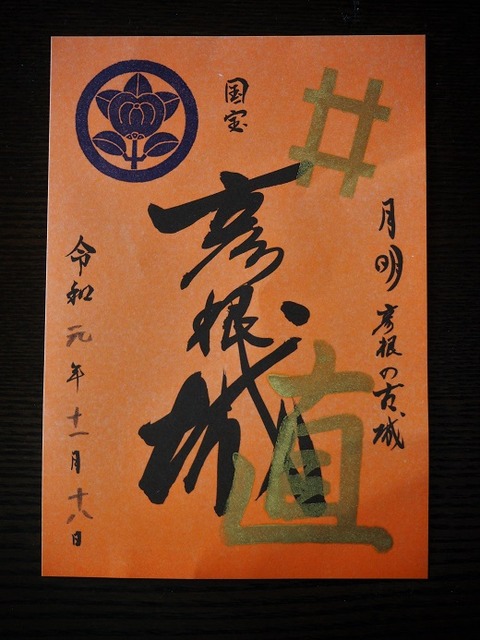 井
国宝
月明彦根の古城
彦根城
直
令和元年十一月十八日